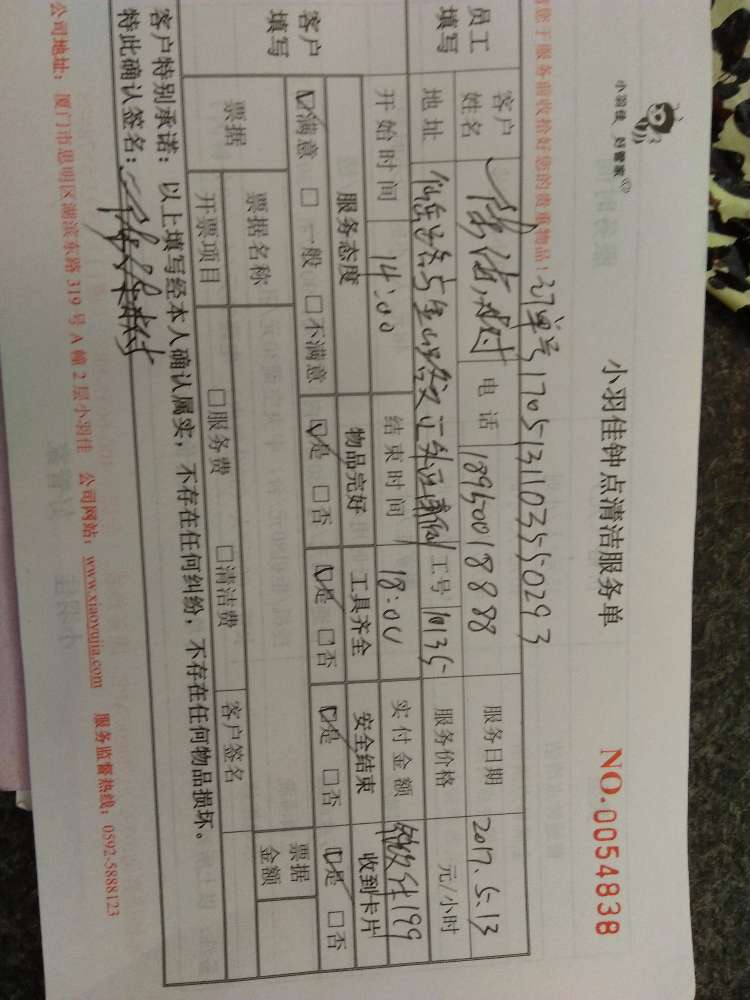 小羽佳 好管家
小羽佳钟点清洁服务单
NO.0054838
您于服务前收拾好您的贵重物品！订单号1705131103550293
员工填写 客户姓名 电话 18950018888 服务日期 2017.5.13
地址 工号 10135 服务价格 元/小时
开始时间 14:00 结束时间 18:00 实付金额 199
客户填写 服务态度 物品完好 工具齐全 安全结束 收到卡片
☑满意 □一般 □不满意 ☑是 □否 ☑是 □否 ☑是 □否 ☑是 □否
票据 票据名称 客户签名 票据金额
开票项目 □服务费 □清洁费
客户特别承诺：以上填写经本人确认属实，不存在任何纠纷，不存在任何物品损坏。
特此确认签名：
公司地址：厦门市思明区湖滨东路319号A幢2层小羽佳 公司网站：www.xiaoyujia.com 服务监督热线：0592-5888123